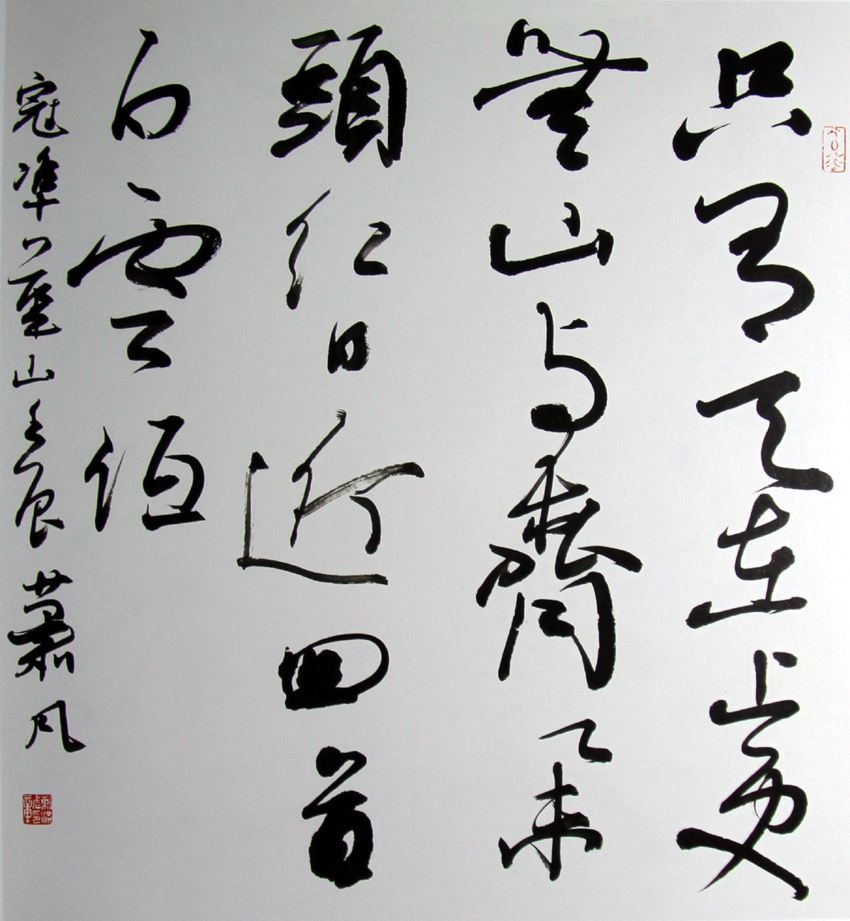 只有天在上更
無山与齊舉
頭紅日近回首
白雲低
寇準 華山壬辰 蕭風